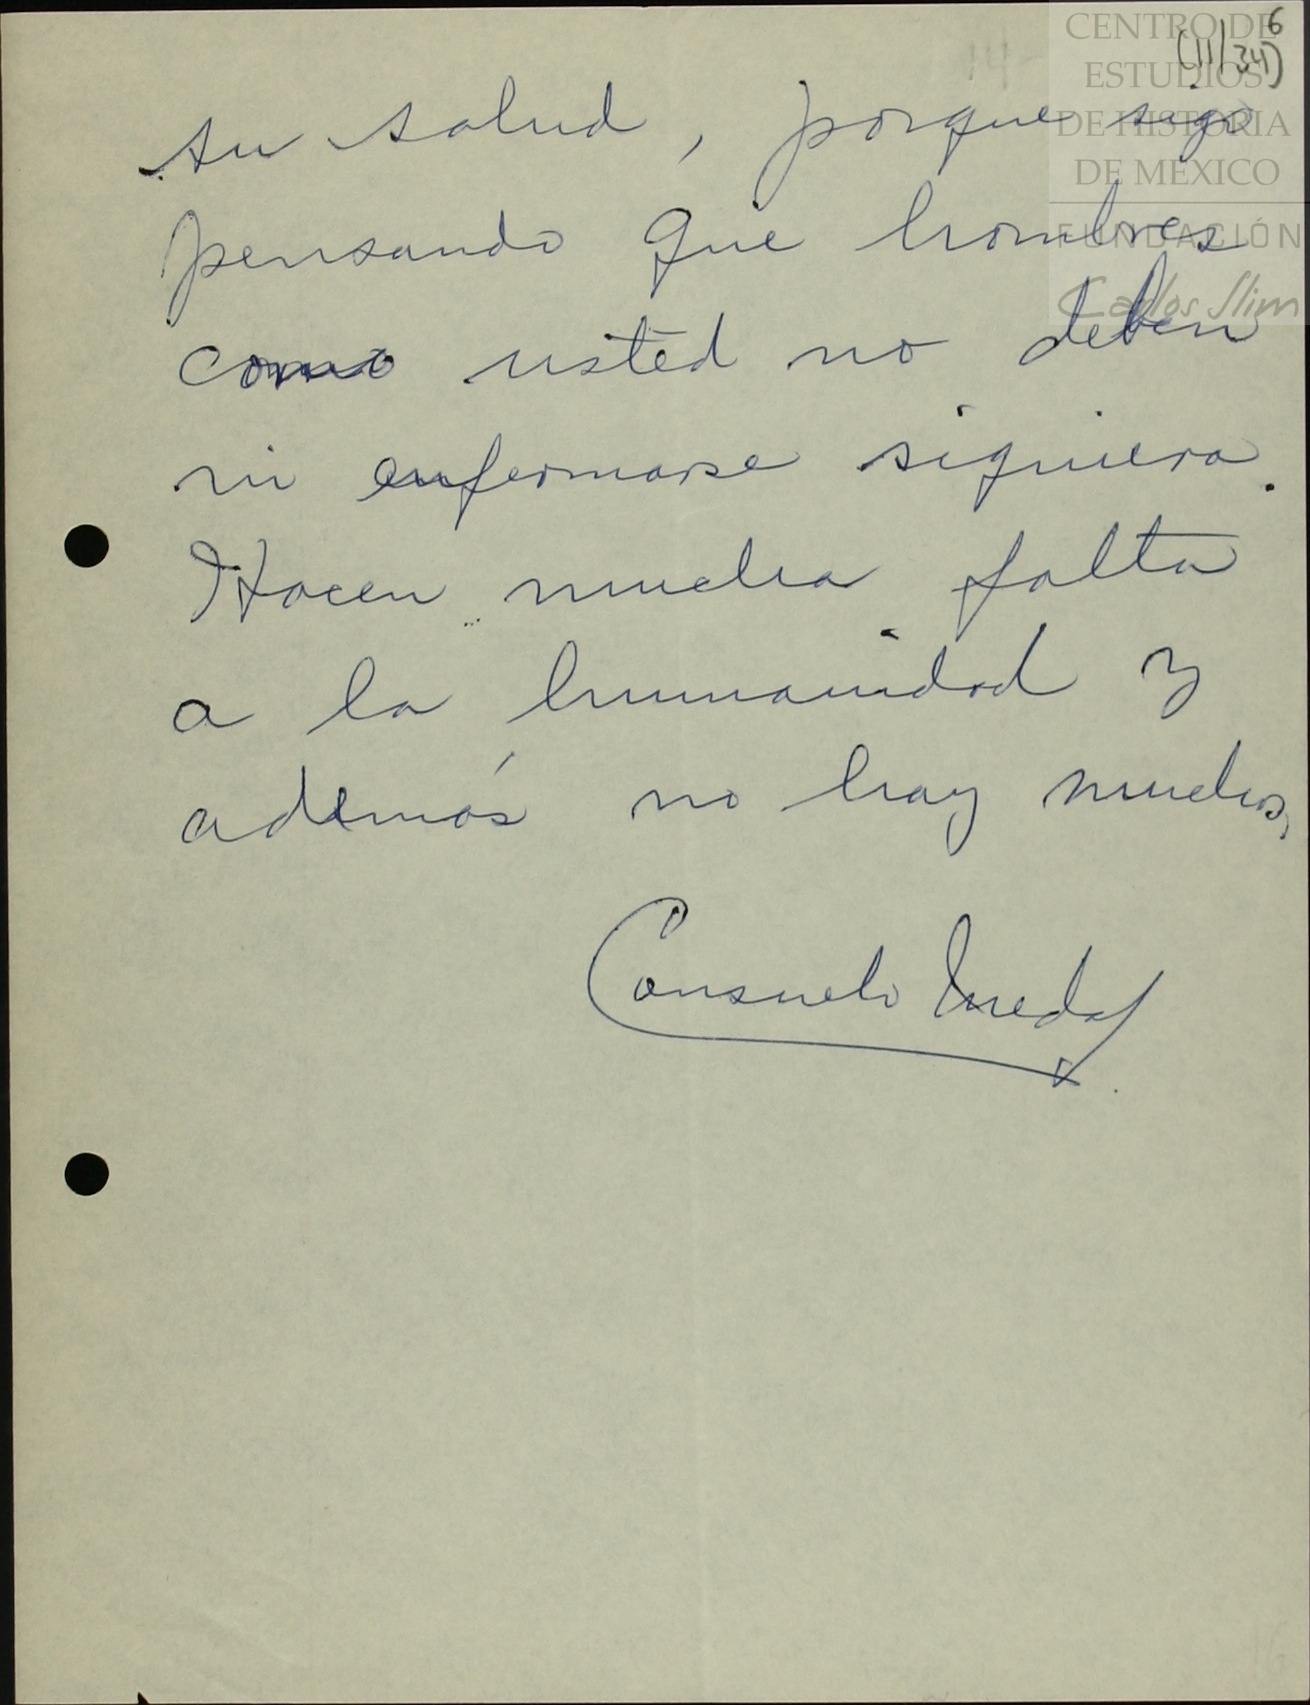 CENTRO DE
ESTUDIOS
DE HISTORIA
DE MÉXICO
FUNDACIÓN
Carlos Slim
6
(11/34)
su salud, porque sigo
pensando que hombres
como usted no deben
ni enfermarse siquiera.
Hacen mucha falta
a la humanidad y
además no hay muchos,
Consuelo